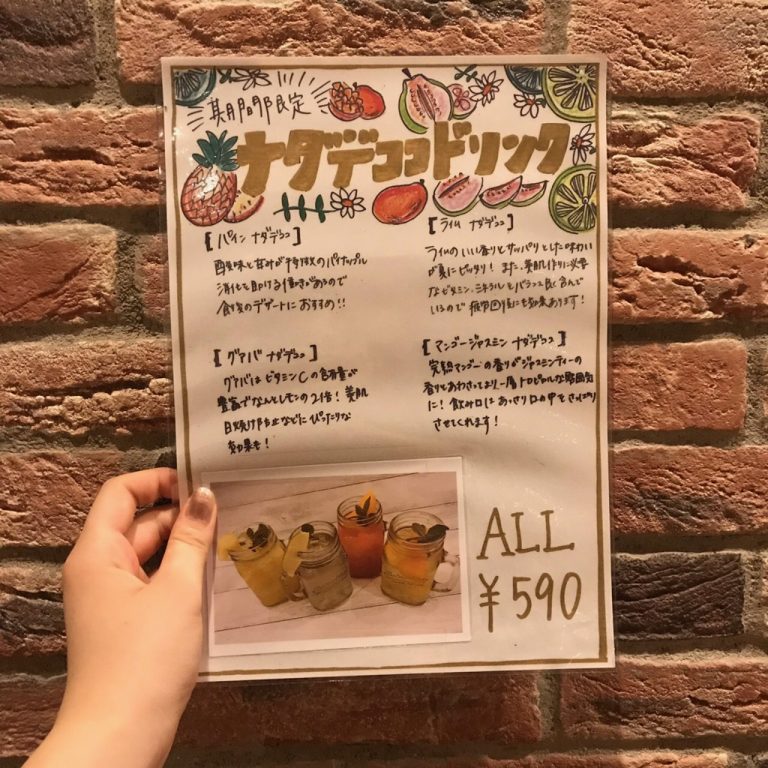 期間限定
ナタデココドリンク
【パイン ナタデココ】
酸味と甘みが特徴のパイナップル
消化を助ける働きがあるので
食後のデザートにおすすめ!!
【ライム ナタデココ】
ライムのいい香りとサッパリとした味わい
が夏にピッタリ! また、美肌作りに必要
なビタミン、ミネラルもバランス良く含んで
いるので 疲労回復にも効果あります!
【グァバ ナタデココ】
グァバは ビタミンCの含有量が
豊富でなんとレモンの21倍! 美肌
日焼け防止などに ぴったりな
効果も!
【マンゴージャスミン ナタデココ】
完熟マンゴーの香りがジャスミンティーの
香りとあわさってより一層トロピカルな雰囲気
に! 飲み口はあっさり口の中をさっぱり
させてくれます!
ALL
¥590